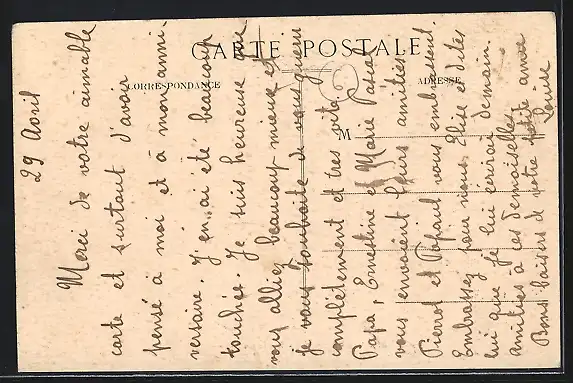 CARTE POSTALE
CORRESPONDANCE
ADRESSE
M
29 Avril
Merci de votre aimable
carte et surtout d'avoir
pensé à moi et à mon anni-
versaire. J'en ai été beaucoup
touchée. Je suis heureuse que
vous alliez beaucoup mieux et
je vous souhaite de vous guérir
complètement et très vite.
Papa, Ernestine et Marie
vous envoient leurs amitiés
Pierrot et vous embrassent.
Embrassez pour nous Elise et dites
lui que je lui écrirai demain.
amitiés à ces demoiselles,
Bons baisers de votre petite amie
Louise